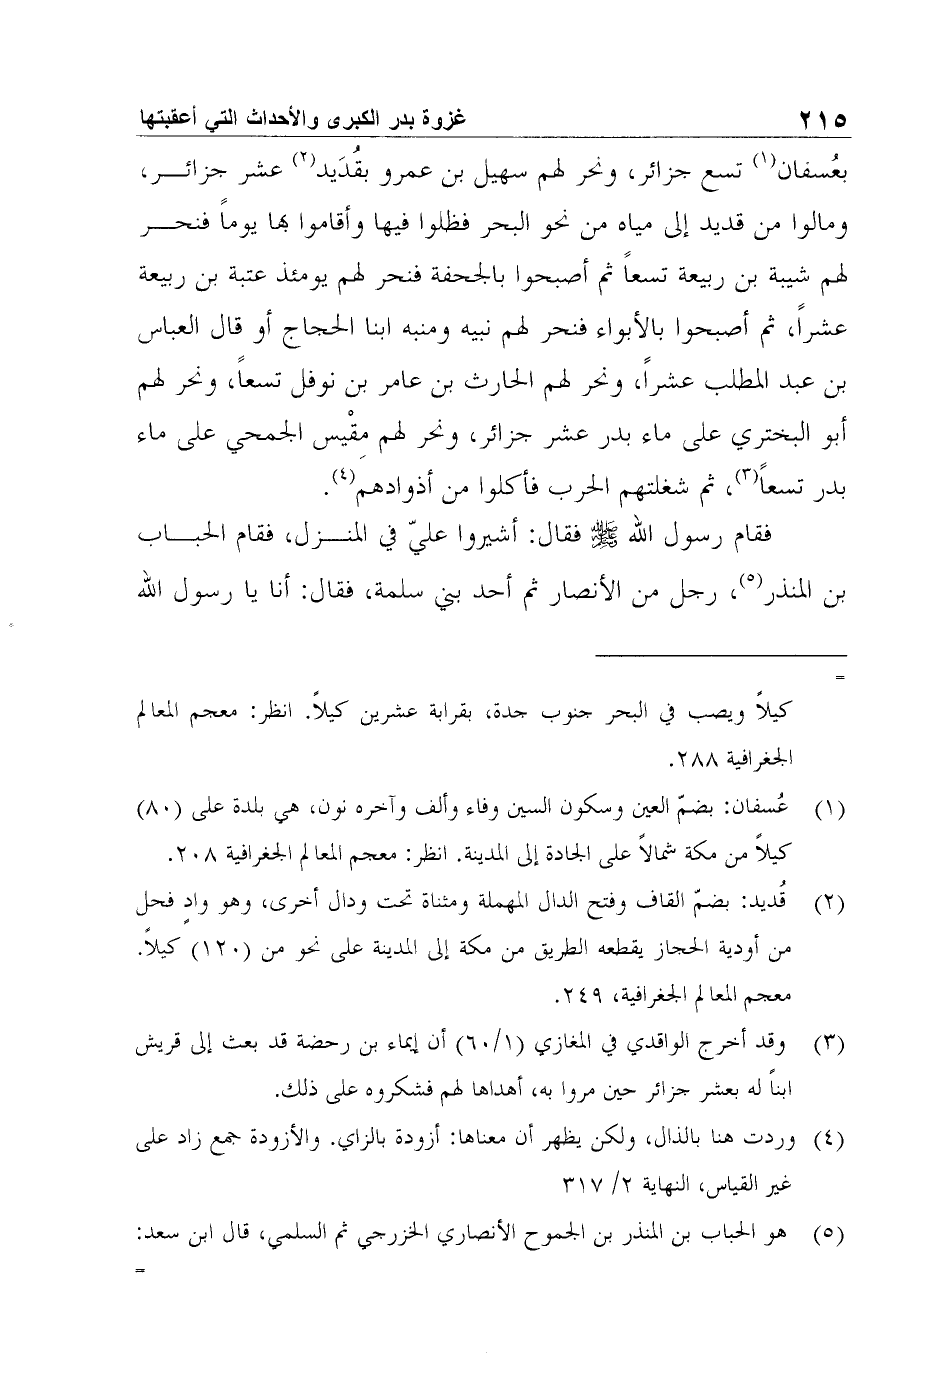 ٢١٥ غزوة بدر الكبرى والأحداث التي أعقبتها
بعُسفان(١) تسع جزائر، ونحر لهم سهيل بن عمرو بقُدَيد(٢) عشر جزائـــر،
ومالوا من قديد إلى مياه من نحو البحر فظلوا فيها وأقاموا بها يوماً فنحـــر
لهم شيبة بن ربيعة تسعاً ثم أصبحوا بالجحفة فنحر لهم يومئذ عتبة بن ربيعة
عشراً، ثم أصبحوا بالأبواء فنحر لهم نبيه ومنبه ابنا الحجاج أو قال العباس
بن عبد المطلب عشراً، ونحر لهم الحارث بن عامر بن نوفل تسعاً، ونحر لهم
أبو البختري على ماء بدر عشر جزائر، ونحر لهم مِقْيس الجمحي على ماء
بدر تسعاً(٣)، ثم شغلتهم الحرب فأكلوا من أذوادهم(٤).
فقام رسول الله ﷺ فقال: أشيروا عليّ في المنـــزل، فقام الحبـــاب
بن المنذر(٥)، رجل من الأنصار ثم أحد بني سلمة، فقال: أنا يا رسول الله
=
كيلاً ويصب في البحر جنوب جدة، بقرابة عشرين كيلاً. انظر: معجم المعالم
الجغرافية ٢٨٨.
(١) عُسفان: بضمّ العين وسكون السين وفاء وألف وآخره نون، هي بلدة على (٨٠)
كيلاً من مكة شمالاً على الجادة إلى المدينة. انظر: معجم المعالم الجغرافية ٢٠٨.
(٢) قُديد: بضمّ القاف وفتح الدال المهملة ومثناة تحت ودال أخرى، وهو وادٍ فحل
من أودية الحجاز يقطعه الطريق من مكة إلى المدينة على نحو من (١٢٠) كيلاً.
معجم المعالم الجغرافية، ٢٤٩.
(٣) وقد أخرج الواقدي في المغازي (٦٠/١) أن إيماء بن رحضة قد بعث إلى قريش
ابناً له بعشر جزائر حين مروا به، أهداها لهم فشكروه على ذلك.
(٤) وردت هنا بالذال، ولكن يظهر أن معناها: أزودة بالزاي. والأزودة جمع زاد على
غير القياس، النهاية ٢/ ٣١٧
(٥) هو الحباب بن المنذر بن الجموح الأنصاري الخزرجي ثم السلمي، قال ابن سعد:
=